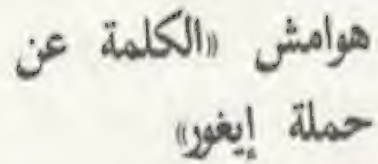 هوامش «الكلمة عن
حملة إيغور»